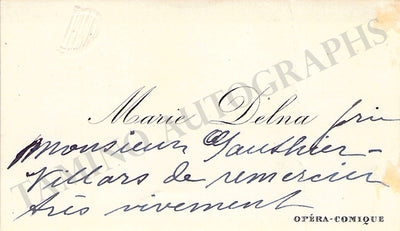 Marie Delna prie
Monsieur Gauthier-
Villars de remercier
très vivement
OPÉRA-COMIQUE
TAMINO AUTOGRAPHS